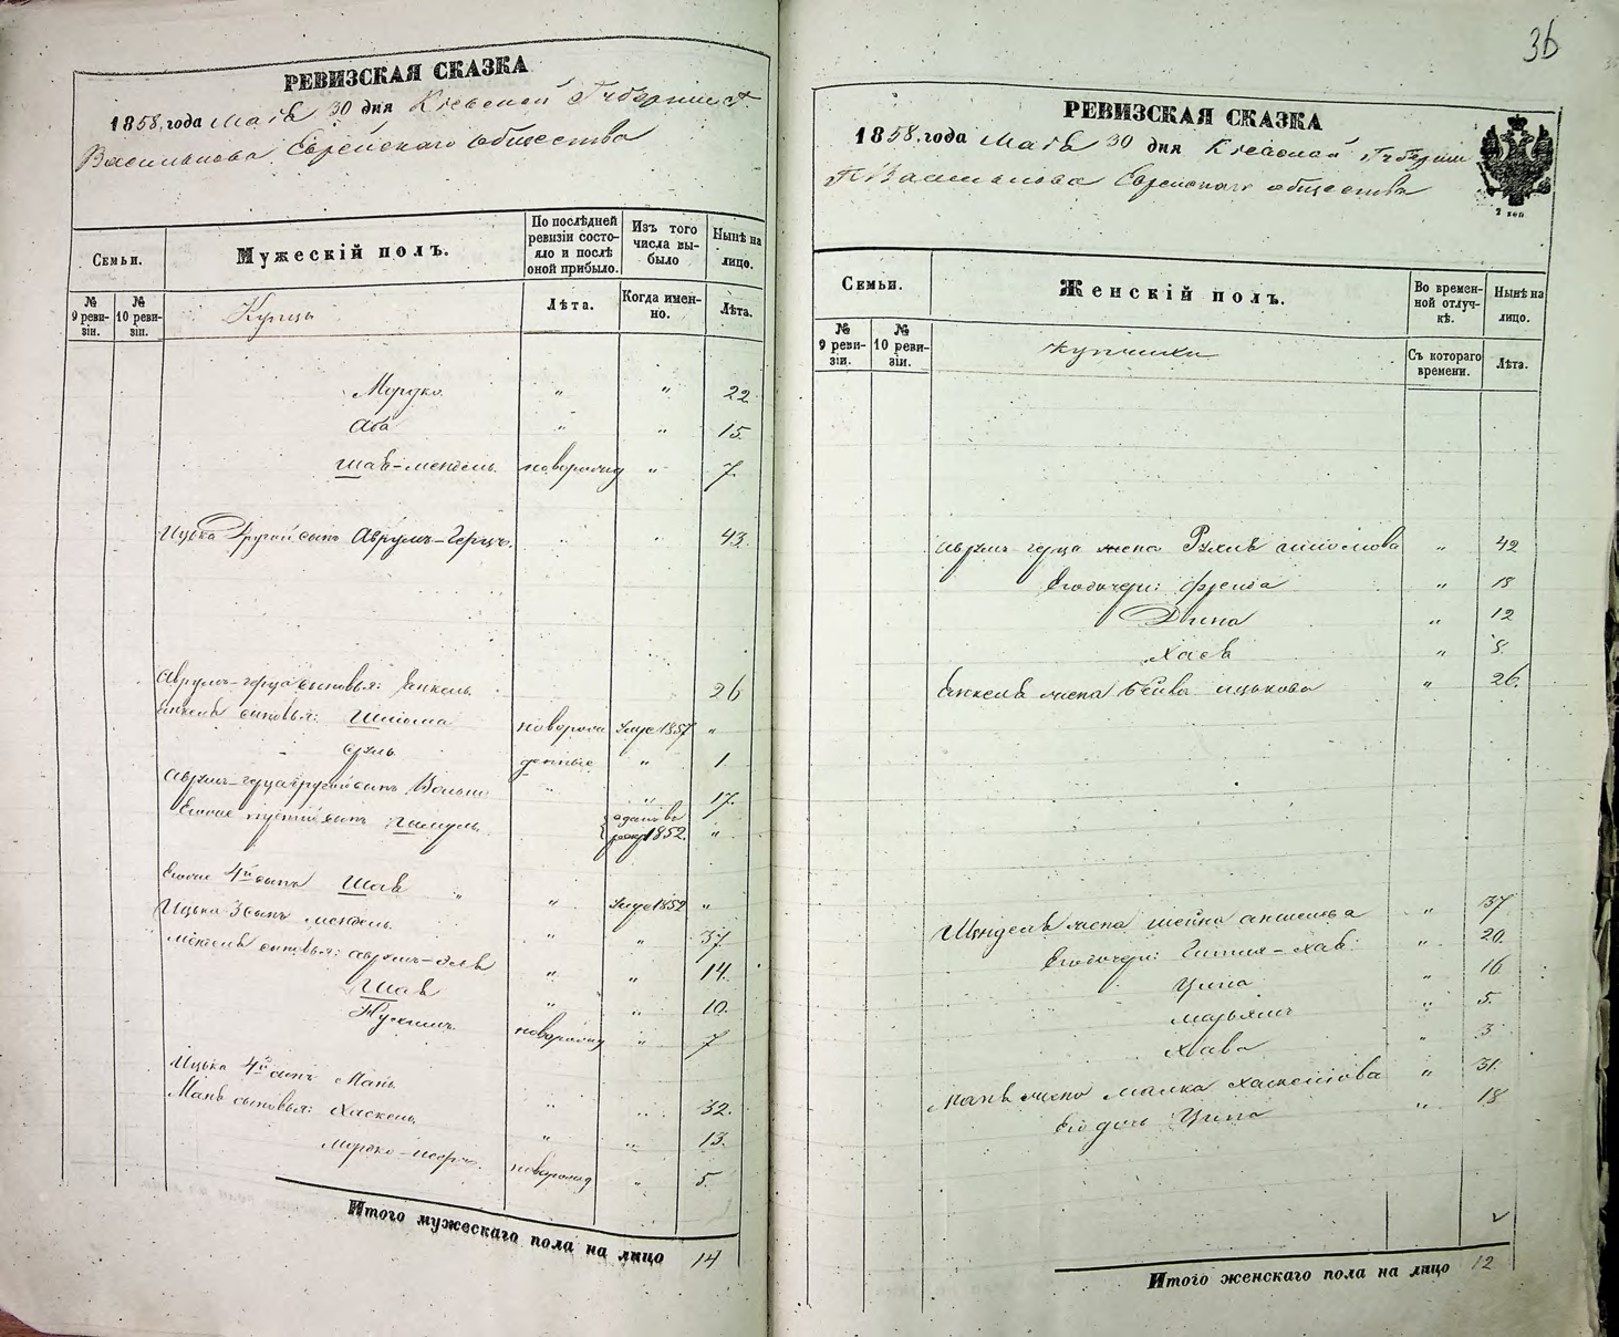 РЕВИЗСКАЯ СКАЗКА
1858 года Маія 30 дня Кіевской Губерніи г.
Василькова Еврейскаго общества
Семьи.
Мужескій полъ.
По послѣдней ревизіи состояло и послѣ оной прибыло.
Изъ того числа выбыло
Нынѣ на лицо.
№ 9 ревизіи.
№ 10 ревизіи.
Купцы
Лѣта.
Когда именно.
Лѣта.
Мордко " " 22
Аба " " 15.
Шая-Мендель новорожд " 7
Ицька Другой сынъ Аврумъ-Герцъ. " " 43.
Аврумъ-Герца сыновья: Янкель 26
Янкеля сыновья: Шлиома новорож 1857 "
Сруль денные " 1
Аврумъ-Герца другой сынъ " " 17.
Его же третій сынъ
{ 1852. "
Его же 4й сынъ Шая " 1852 "
Ицька 3 сынъ Мендель " " 37
Менделя сыновья: Аврумъ- " " 14.
Шая " " 10.
новорожд " 7
Ицька 4й сынъ Мань " " 32.
Маня сыновья: Хаскель " " 13.
Мордко- новорожд " 5.
Итого мужескаго пола на лицо 14
36
РЕВИЗСКАЯ СКАЗКА
1858 года Маія 30 дня Кіевской Губерніи
Г. Василькова Еврейскаго общества
Семьи.
Женскій полъ.
Во временной отлучкѣ.
Нынѣ на лицо.
№ 9 ревизіи.
№ 10 ревизіи.
Купчихи
Съ котораго времени.
Лѣта.
Аврумъ Герца жена Рухля Шлиомова " 42
Его дочери: Фрейда " 18
Дина " 12
Хася " 8
Янкеля жена Бейла Ицькова " 26.
Менделя жена Шейна " 37
Его дочери: Гитля-Хая " 20.
Ципа " 16
Марьямъ " 5.
Хава " 3
Маня жена Малка Хаскелова " 31.
Его дочь Ципа " 18
Итого женскаго пола на лицо 12